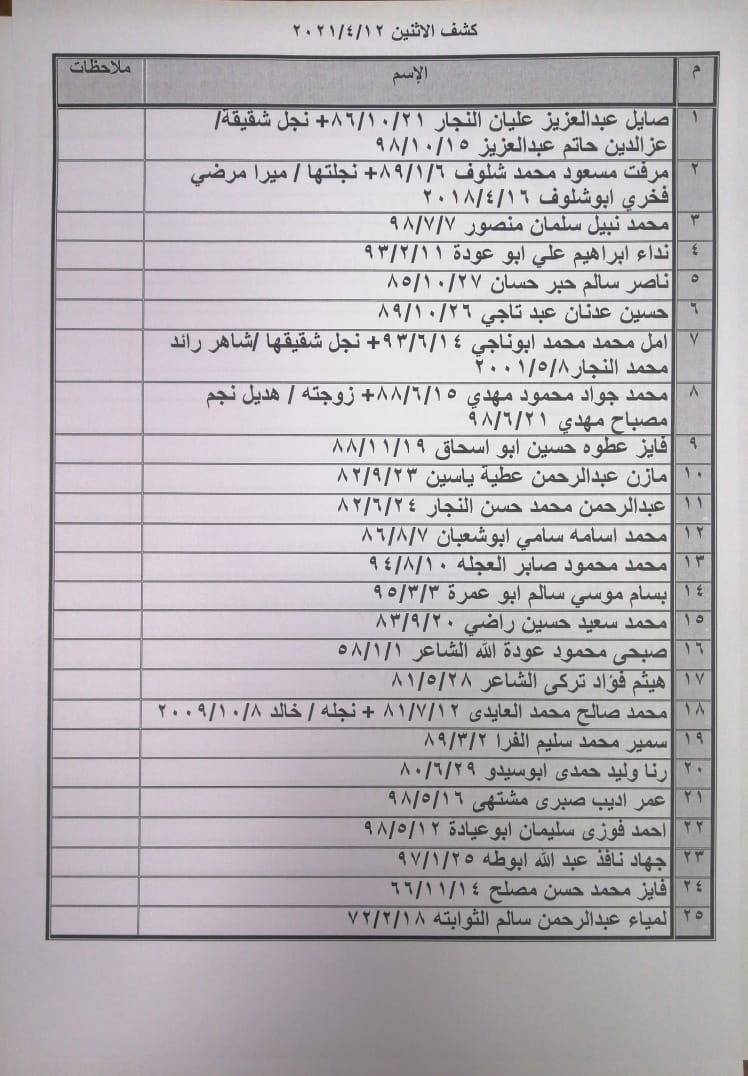 كشف الاثنين ٢٠٢١/٤/١٢
م الإسم ملاحظات
١ صايل عبدالعزيز عليان النجار ٨٦/١٠/٢١+ نجل شقيقة/
عزالدين حاتم عبدالعزيز ٩٨/١٠/١٥
٢ مرفت مسعود محمد شلوف ٨٩/١/٦+ نجلتها / ميرا مرضي
فخري ابوشلوف ٢٠١٨/٤/١٦
٣ محمد نبيل سلمان منصور ٩٨/٧/٧
٤ نداء ابراهيم علي ابو عودة ٩٣/٢/١١
٥ ناصر سالم حبر حسان ٨٥/١٠/٢٧
٦ حسين عدنان عبد تاجي ٨٩/١٠/٢٦
٧ امل محمد محمد ابوناجي ٩٣/٦/١٤+ نجل شقيقها /شاهر رائد
محمد النجار٢٠٠١/٥/٨
٨ محمد جواد محمود مهدي ٨٨/٦/١٥+ زوجته / هديل نجم
مصباح مهدي ٩٨/٦/٢١
٩ فايز عطوه حسين ابو اسحاق ٨٨/١١/١٩
١٠ مازن عبدالرحمن عطية ياسين ٨٢/٩/٢٣
١١ عبدالرحمن محمد حسن النجار ٨٢/٦/٢٤
١٢ محمد اسامه سامي ابوشعبان ٨٦/٨/٧
١٣ محمد محمود صابر العجله ٩٤/٨/١٠
١٤ بسام موسي سالم ابو عمرة ٩٥/٣/٣
١٥ محمد سعيد حسين راضي ٨٣/٩/٢٠
١٦ صبحى محمود عودة الله الشاعر ٥٨/١/١
١٧ هيثم فؤاد تركى الشاعر ٨١/٥/٢٨
١٨ محمد صالح محمد العايدى ٨١/٧/١٢ + نجله / خالد ٢٠٠٩/١٠/٨
١٩ سمير محمد سليم الفرا ٨٩/٣/٢
٢٠ رنا وليد حمدى ابوسيدو ٨٠/٦/٢٩
٢١ عمر اديب صبرى مشتهى ٩٨/٥/١٦
٢٢ احمد فوزى سليمان ابوعيادة ٩٨/٥/١٢
٢٣ جهاد نافذ عبد الله ابوطه ٩٧/١/٢٥
٢٤ فايز محمد حسن مصلح ٦٦/١١/١٤
٢٥ لمياء عبدالرحمن سالم الثوابته ٧٢/٢/١٨